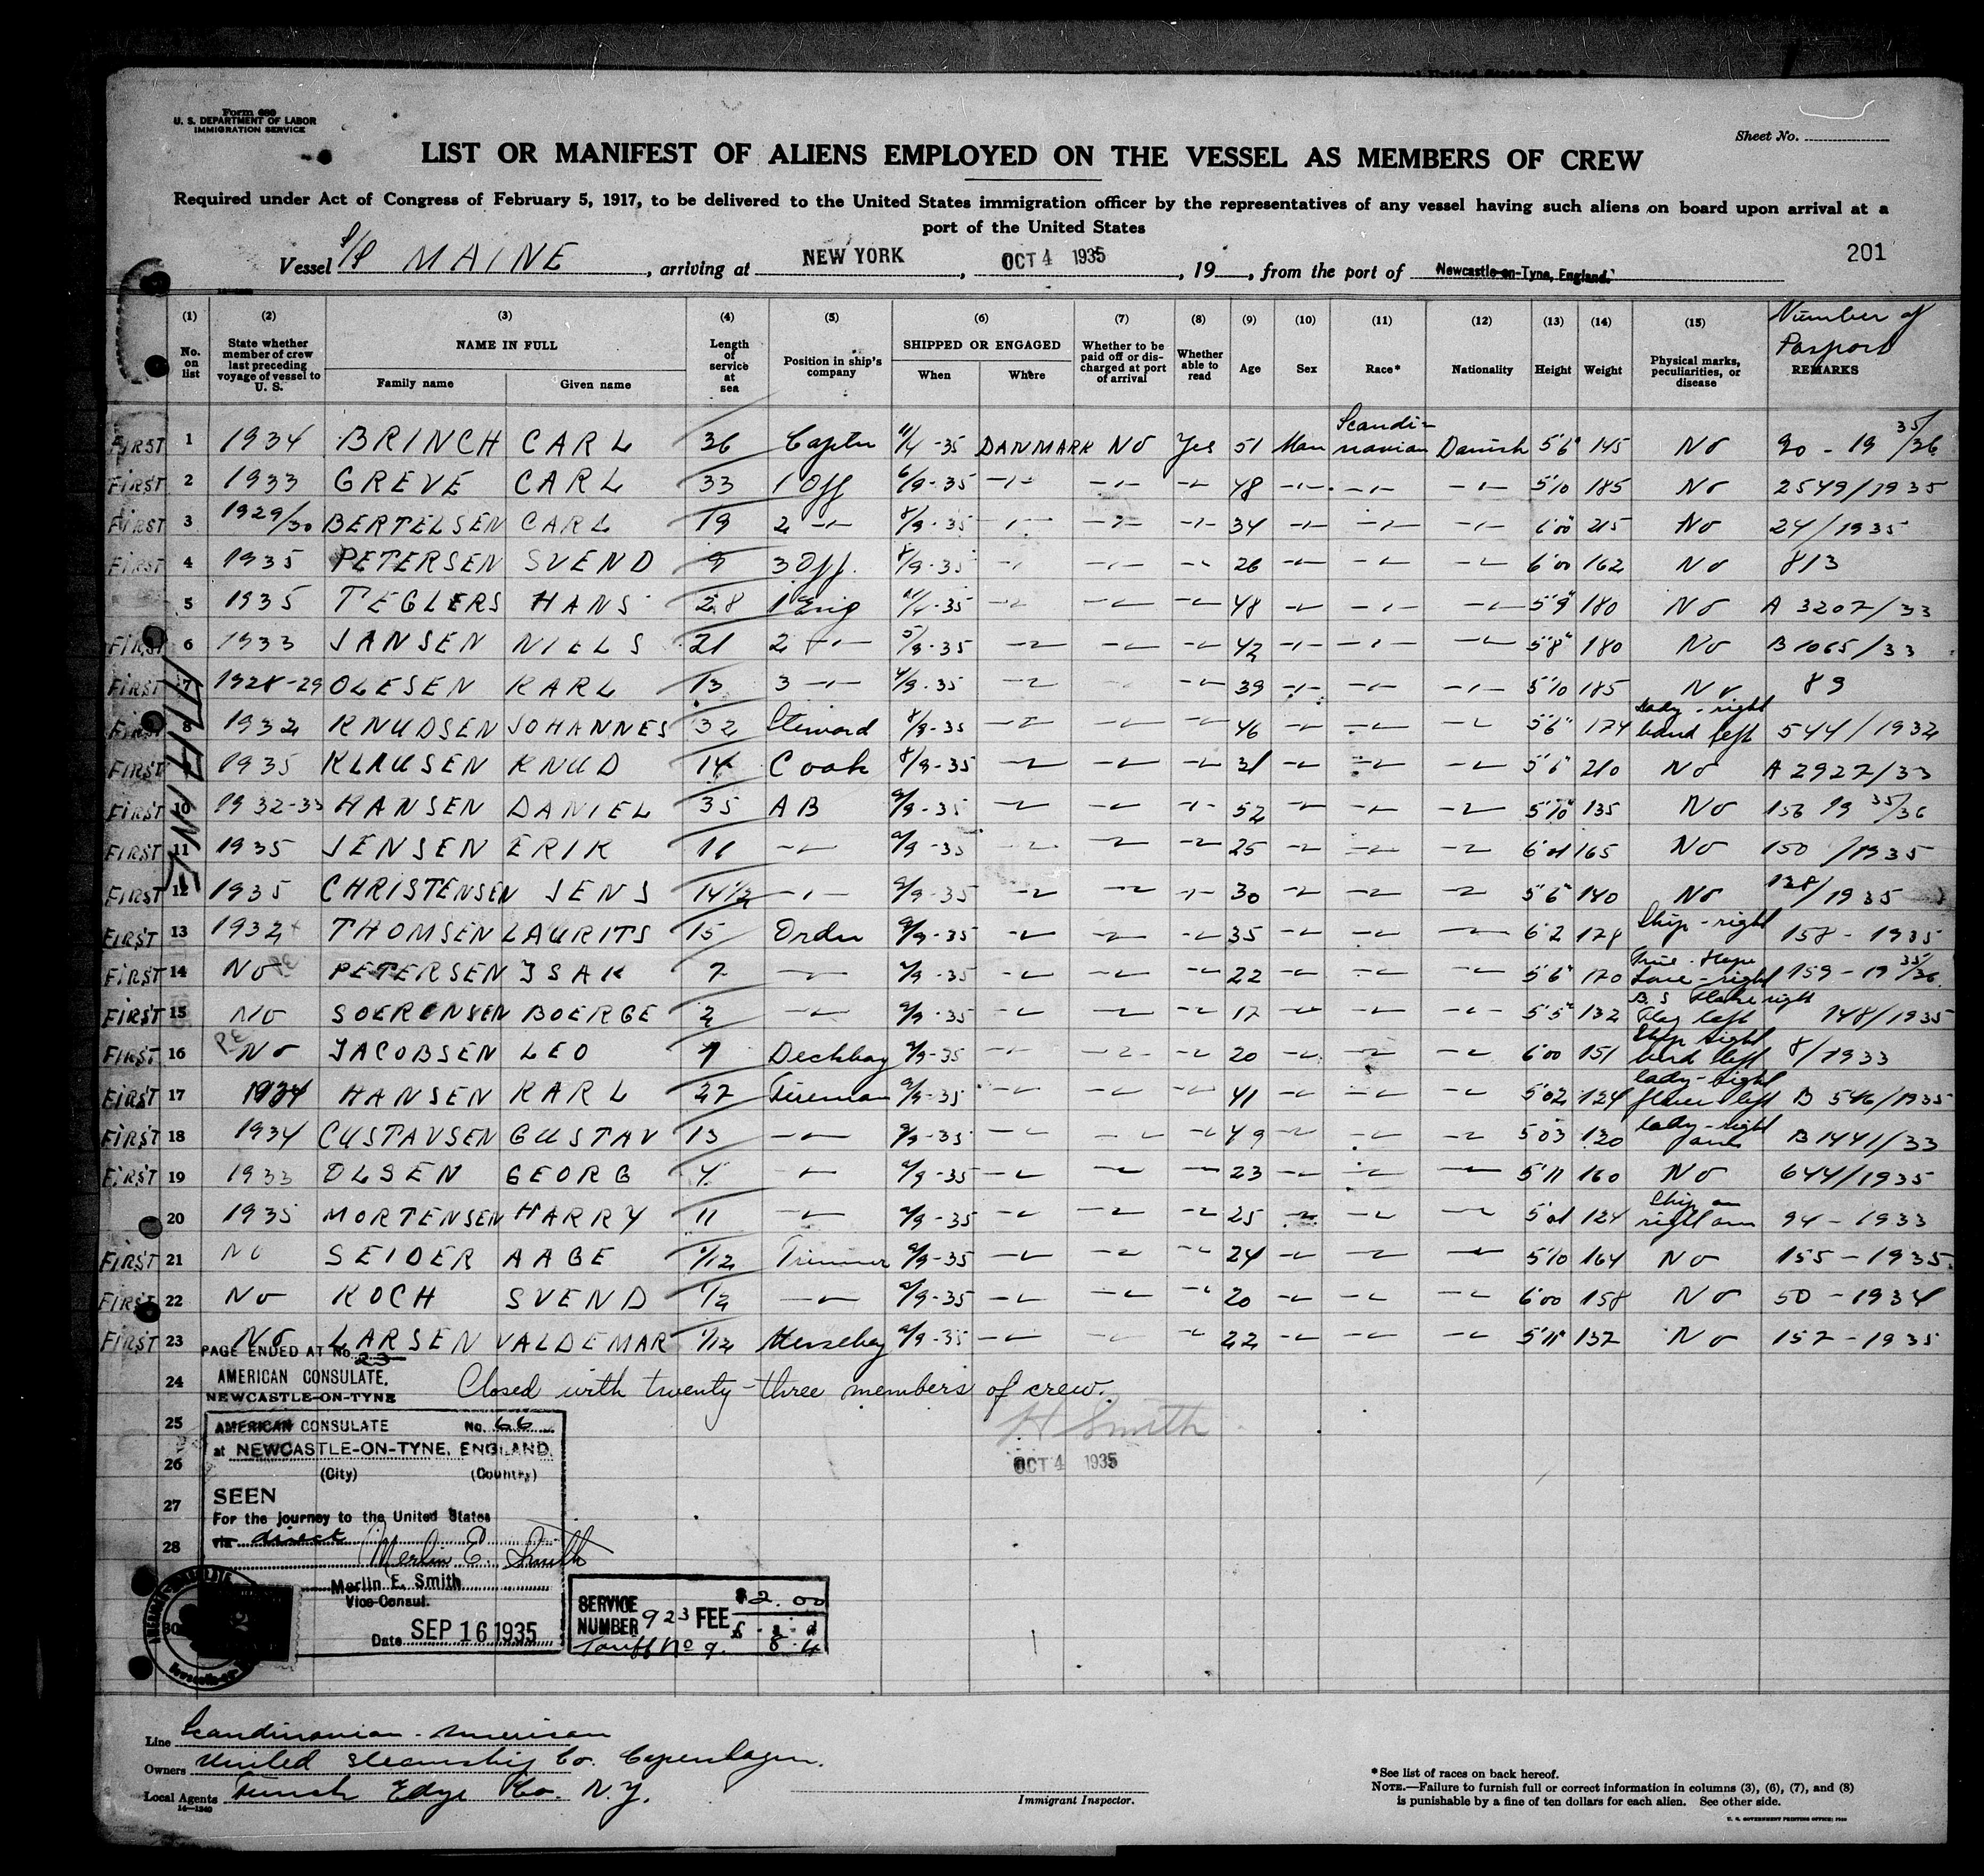 Form 680
U. S. DEPARTMENT OF LABOR
IMMIGRATION SERVICE
Sheet No.
LIST OR MANIFEST OF ALIENS EMPLOYED ON THE VESSEL AS MEMBERS OF CREW
Required under Act of Congress of February 5, 1917, to be delivered to the United States immigration officer by the representatives of any vessel having such aliens on board upon arrival at a
port of the United States
201
Vessel S/S MAINE, arriving at NEW YORK, OCT 4 1935, 19, from the port of Newcastle-on-Tyne, England.
(1) (2) (3) (4) (5) (6) (7) (8) (9) (10) (11) (12) (13) (14) (15) Number of Pasport
No. on list State whether member of crew last preceding voyage of vessel to U. S. NAME IN FULL Family name Given name Length of service at sea Position in ship's company SHIPPED OR ENGAGED When Where Whether to be paid off or discharged at port of arrival Whether able to read Age Sex Race* Nationality Height Weight Physical marks, peculiarities, or disease REMARKS
FIRST 1 1934 BRINCH CARL 36 Captn 11/4-35 DANMARK NO Yes 51 Man Scandinavian Danish 5'6" 145 No 90 - 19 35/36
FIRST 2 1933 GREVE CARL 33 1 Off 6/9-35 -"- -"- -"- 48 -"- -"- -"- 5'10 185 No 2549/1935
FIRST 3 1929/30 BERTELSEN CARL 19 2 -"- 8/9-35 -"- -"- -"- 34 -"- -"- -"- 6'00 215 No 24/1935
FIRST 4 1935 PETERSEN SVEND 9 3 Off. 8/9-35 -"- -"- -"- 26 -"- -"- -"- 6'00 162 No 813
5 1935 TEGLERS HANS 28 1 Eng -35 -"- -"- -"- 48 -"- -"- -"- 5'9" 180 No A 3207/33
FIRST 6 1933 JANSEN NIELS 21 2 -"- 5/9-35 -"- -"- -"- 42 -"- -"- -"- 5'8" 180 No B 1065/33
FIRST 7 1928-29 OLESEN KARL 13 3 -"- 4/9-35 -"- -"- -"- 39 -"- -"- -"- 5'10 185 No 89
FIRST 8 1932 KNUDSEN JOHANNES 32 Steward 8/9-35 -"- -"- -"- 46 -"- -"- -"- 5'6" 174 Lady - right hand left 544/1932
FIRST 9 1935 KLAUSEN KNUD 14 Cook 8/9-35 -"- -"- -"- 31 -"- -"- -"- 5'6" 210 No A 2927/33
FIRST 10 1932-33 HANSEN DANIEL 35 AB 9/9-35 -"- -"- -"- 52 -"- -"- -"- 5'10" 135 No 156 19 35/36
FIRST 11 1935 JENSEN ERIK 11 -"- 9/9-35 -"- -"- -"- 25 -"- -"- -"- 6'01 165 No 150/1935
FIRST 12 1935 CHRISTENSEN JENS 14 1/2 -"- 9/9-35 -"- -"- -"- 30 -"- -"- -"- 5'6" 140 No 128/1935
FIRST 13 1932 THOMSEN LAURITS 15 Ordn 9/9-35 -"- -"- -"- 35 -"- -"- -"- 6'2 178 Ship - right 158 - 1935
FIRST 14 No PETERSEN ISAK 7 -"- 9/9-35 -"- -"- -"- 22 -"- -"- -"- 5'6" 170 True - Hope Love - right 159 - 19 35/36
FIRST 15 No SOERENSEN BOERGE 2 -"- 9/9-35 -"- -"- -"- 17 -"- -"- -"- 5'5" 132 B. S right Flag left 148/1935
FIRST 16 No JACOBSEN LEO 1 Deckboy 9/9-35 -"- -"- -"- 20 -"- -"- -"- 6'00 151 Ship right bird left 8/1933
FIRST 17 1934 HANSEN KARL 27 Fireman 9/9-35 -"- -"- -"- 41 -"- -"- -"- 5'02 124 lady - right flower left B 546/1935
FIRST 18 1934 GUSTAVSEN GUSTAV 13 -"- 9/9-35 -"- -"- -"- 49 -"- -"- -"- 5'03 130 lady - right arm B 1441/33
FIRST 19 1933 OLSEN GEORG 4 -"- 9/9-35 -"- -"- -"- 23 -"- -"- -"- 5'11 160 No 644/1935
20 1935 MORTENSEN HARRY 11 -"- 9/9-35 -"- -"- -"- 25 -"- -"- -"- 5'01 124 Ship on right arm 94 - 1933
FIRST 21 No SEIDER AAGE 1/12 Trimmer 9/9-35 -"- -"- -"- 24 -"- -"- -"- 5'10 164 No 155 - 1935
FIRST 22 No KOCH SVEND 1/2 -"- 9/9-35 -"- -"- -"- 20 -"- -"- -"- 6'00 158 No 50 - 1934
FIRST 23 No LARSEN VALDEMAR 1/12 Messeboy 9/9-35 -"- -"- -"- 22 -"- -"- -"- 5'11" 137 No 157 - 1935
PAGE ENDED AT No. 23
AMERICAN CONSULATE,
NEWCASTLE-ON-TYNE
24 Closed with twenty-three members of crew.
H Smith
OCT 4 1935
25
26
27
28
30
AMERICAN CONSULATE No. 66
at NEWCASTLE-ON-TYNE, ENGLAND.
(City) (Country)
SEEN
For the journey to the United States
via direct
Merlin E. Smith
Merlin E. Smith
Vice-Consul.
Date SEP 16 1935
SERVICE NUMBER 923 FEE $2.00
£ s d
Tariff No 9. 8 4
Line Scandinavian - American
Owners United Steamship Co. Copenhagen.
Local Agents Funch Edye Co. N.Y.
14-1240
Immigrant Inspector.
*See list of races on back hereof.
NOTE.—Failure to furnish full or correct information in columns (3), (6), (7), and (8)
is punishable by a fine of ten dollars for each alien. See other side.
U. S. GOVERNMENT PRINTING OFFICE